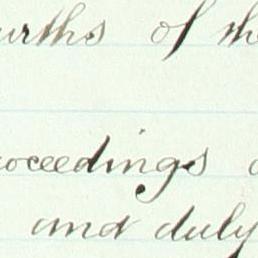 urths of the
oceedings
and duly